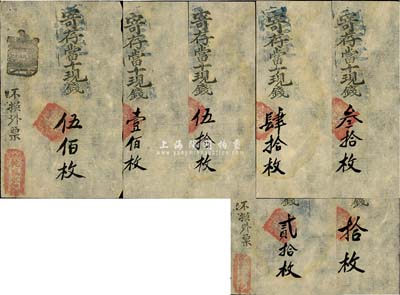 寄存當十現錢
伍佰枚
不掛外票
寄存當十現錢
壹佰枚
寄存當十現錢
伍拾枚
寄存當十現錢
肆拾枚
寄存當十現錢
叁拾枚
錢
貳拾枚
不掛外票
錢
拾枚